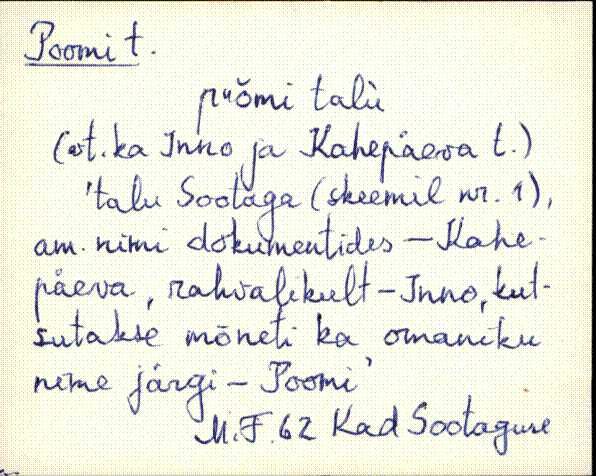 Poomi t.
pᵘömi talù
(vt. ka Inno ja Kahepäeva t.)
'talu Sootaga (skeemil nr. 1),
am. nimi dokumentides – Kahe-
päeva, rahvalikult – Inno, kut-
sutakse mõneti ka omaniku
nime järgi – Poomi'
M.F. 62 Kad Sootaguse